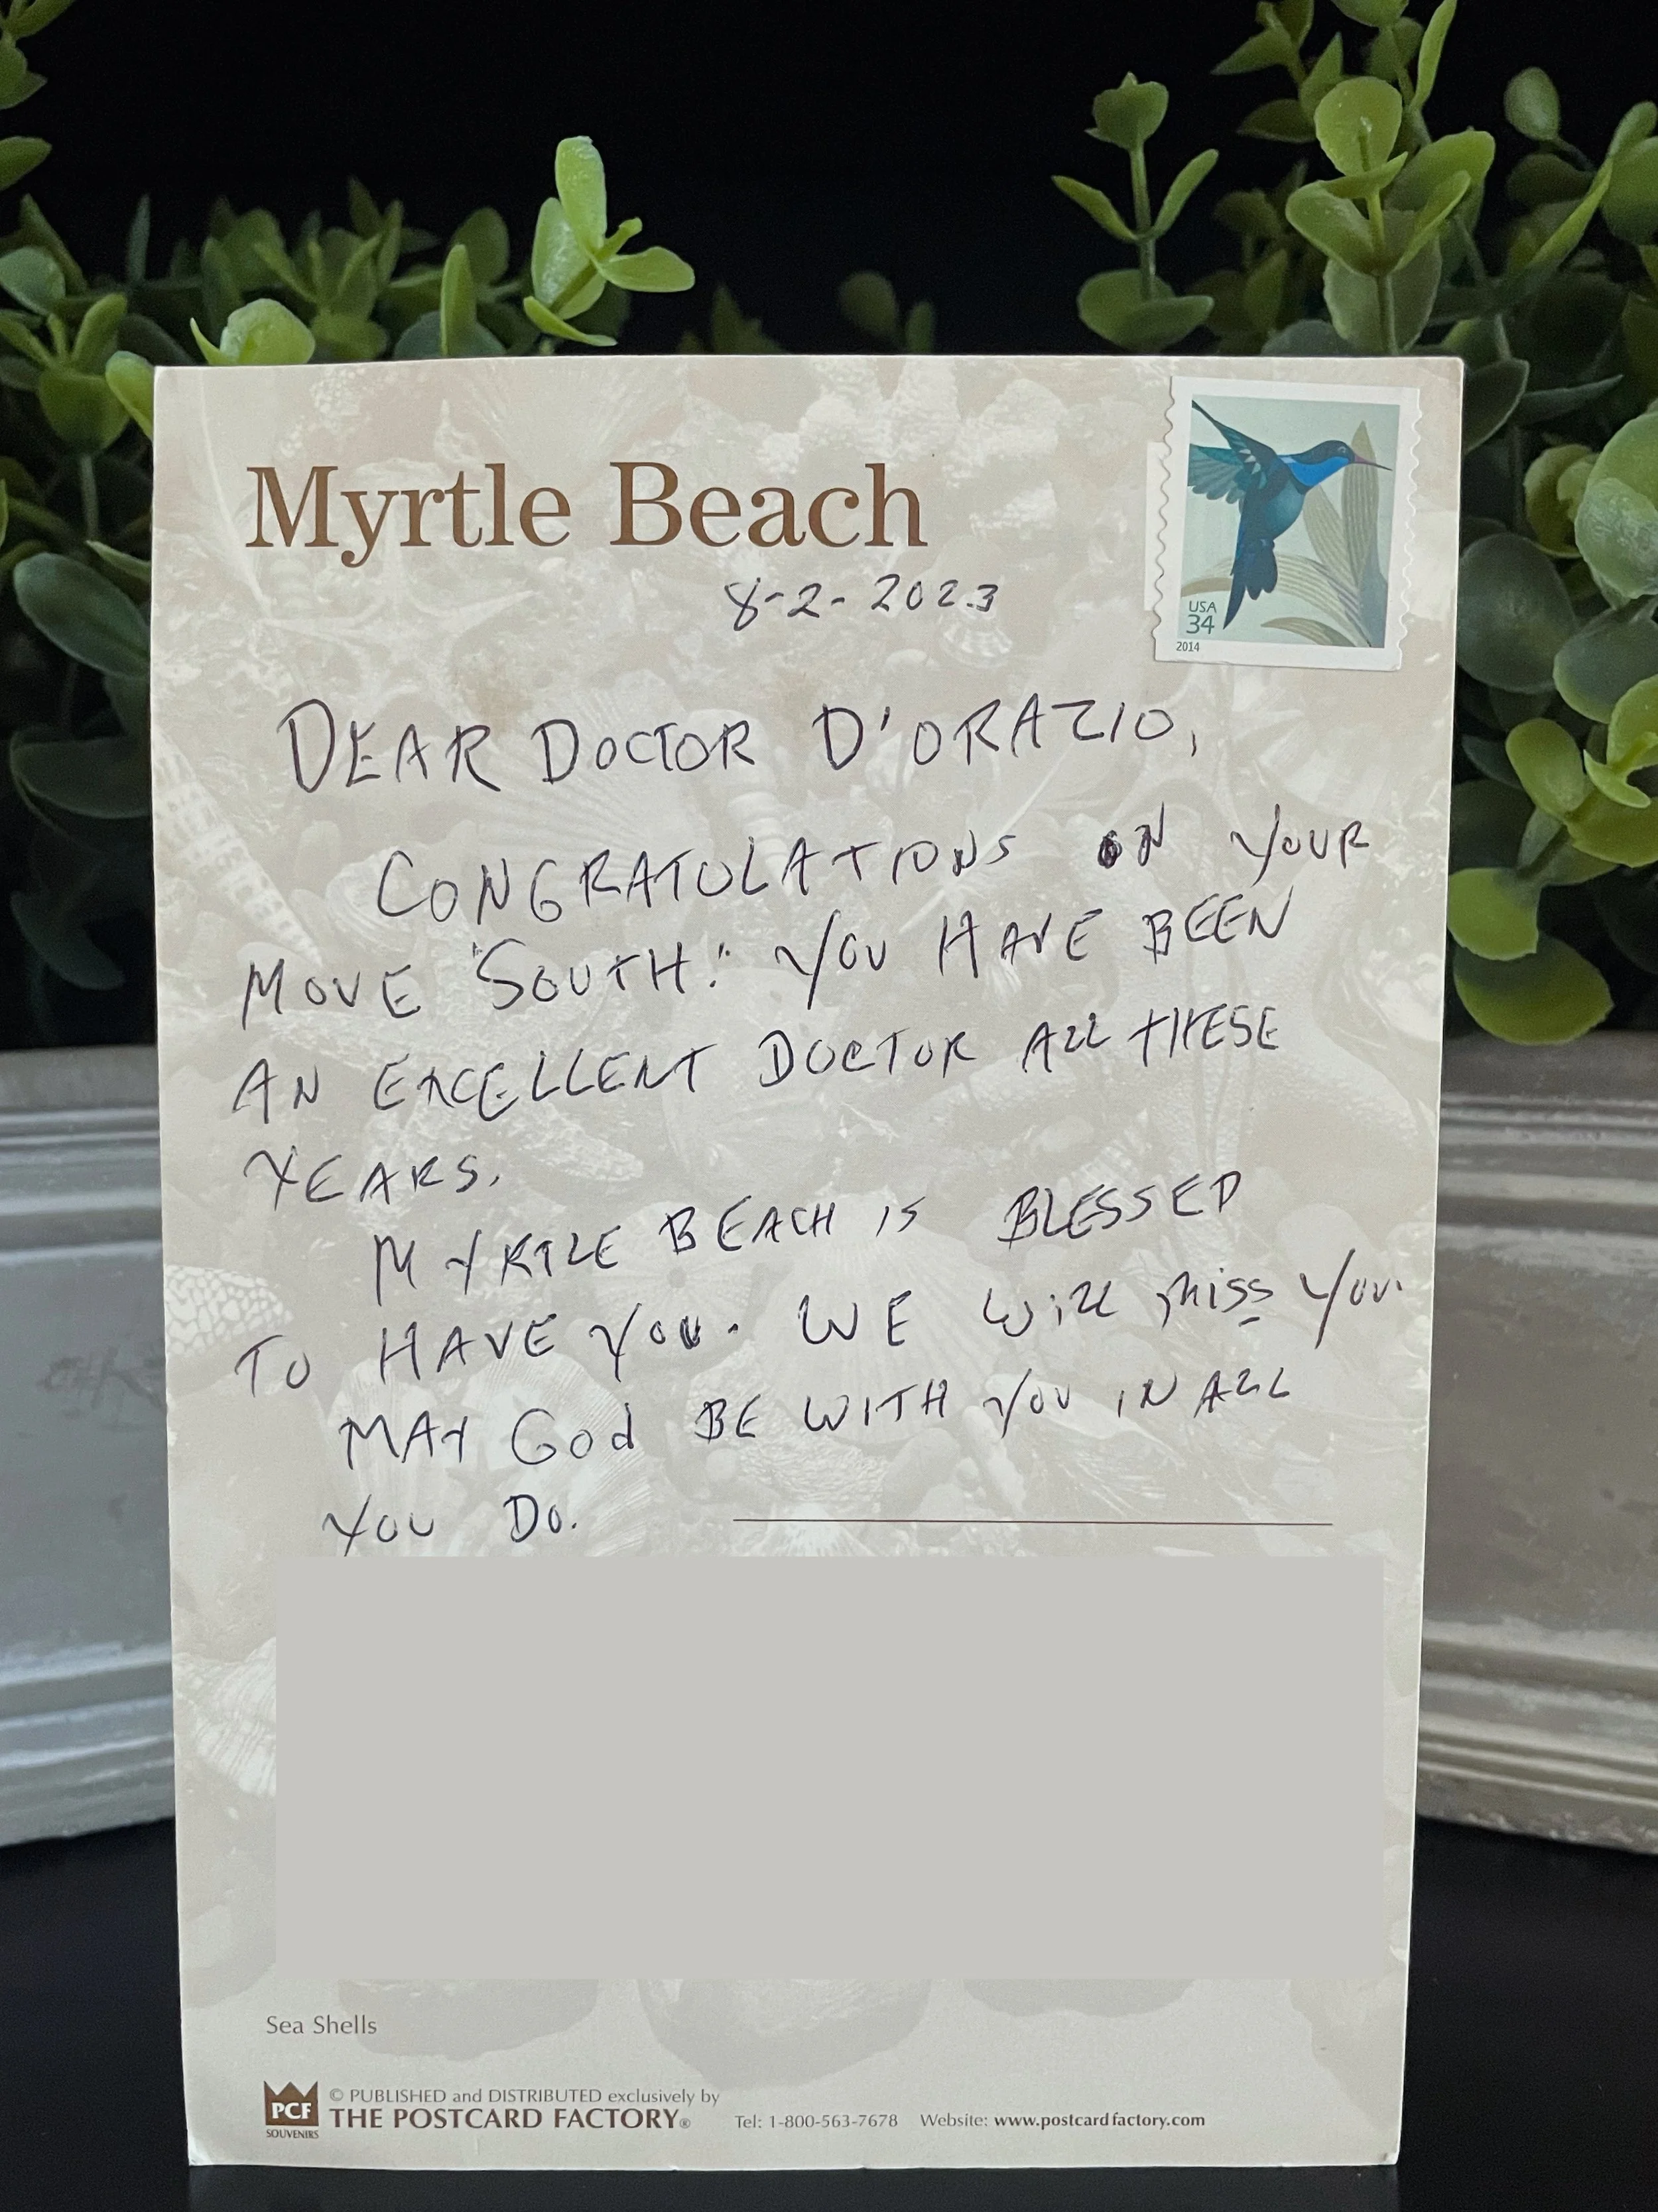 Myrtle Beach
USA
34
2014
8-2-2023
DEAR DOCTOR D'ORAZIO,
CONGRATULATIONS ON YOUR
MOVE "SOUTH." YOU HAVE BEEN
AN EXCELLENT DOCTOR ALL THESE
YEARS.
MYRTLE BEACH IS BLESSED
TO HAVE YOU. WE WiLL MiSS YOU.
MAY God BE WITH YOU IN ALL
YOU DO.
Sea Shells
PCF
SOUVENIRS
© PUBLISHED and DISTRIBUTED exclusively by
THE POSTCARD FACTORY® Tel: 1-800-563-7678 Website: www.postcardfactory.com